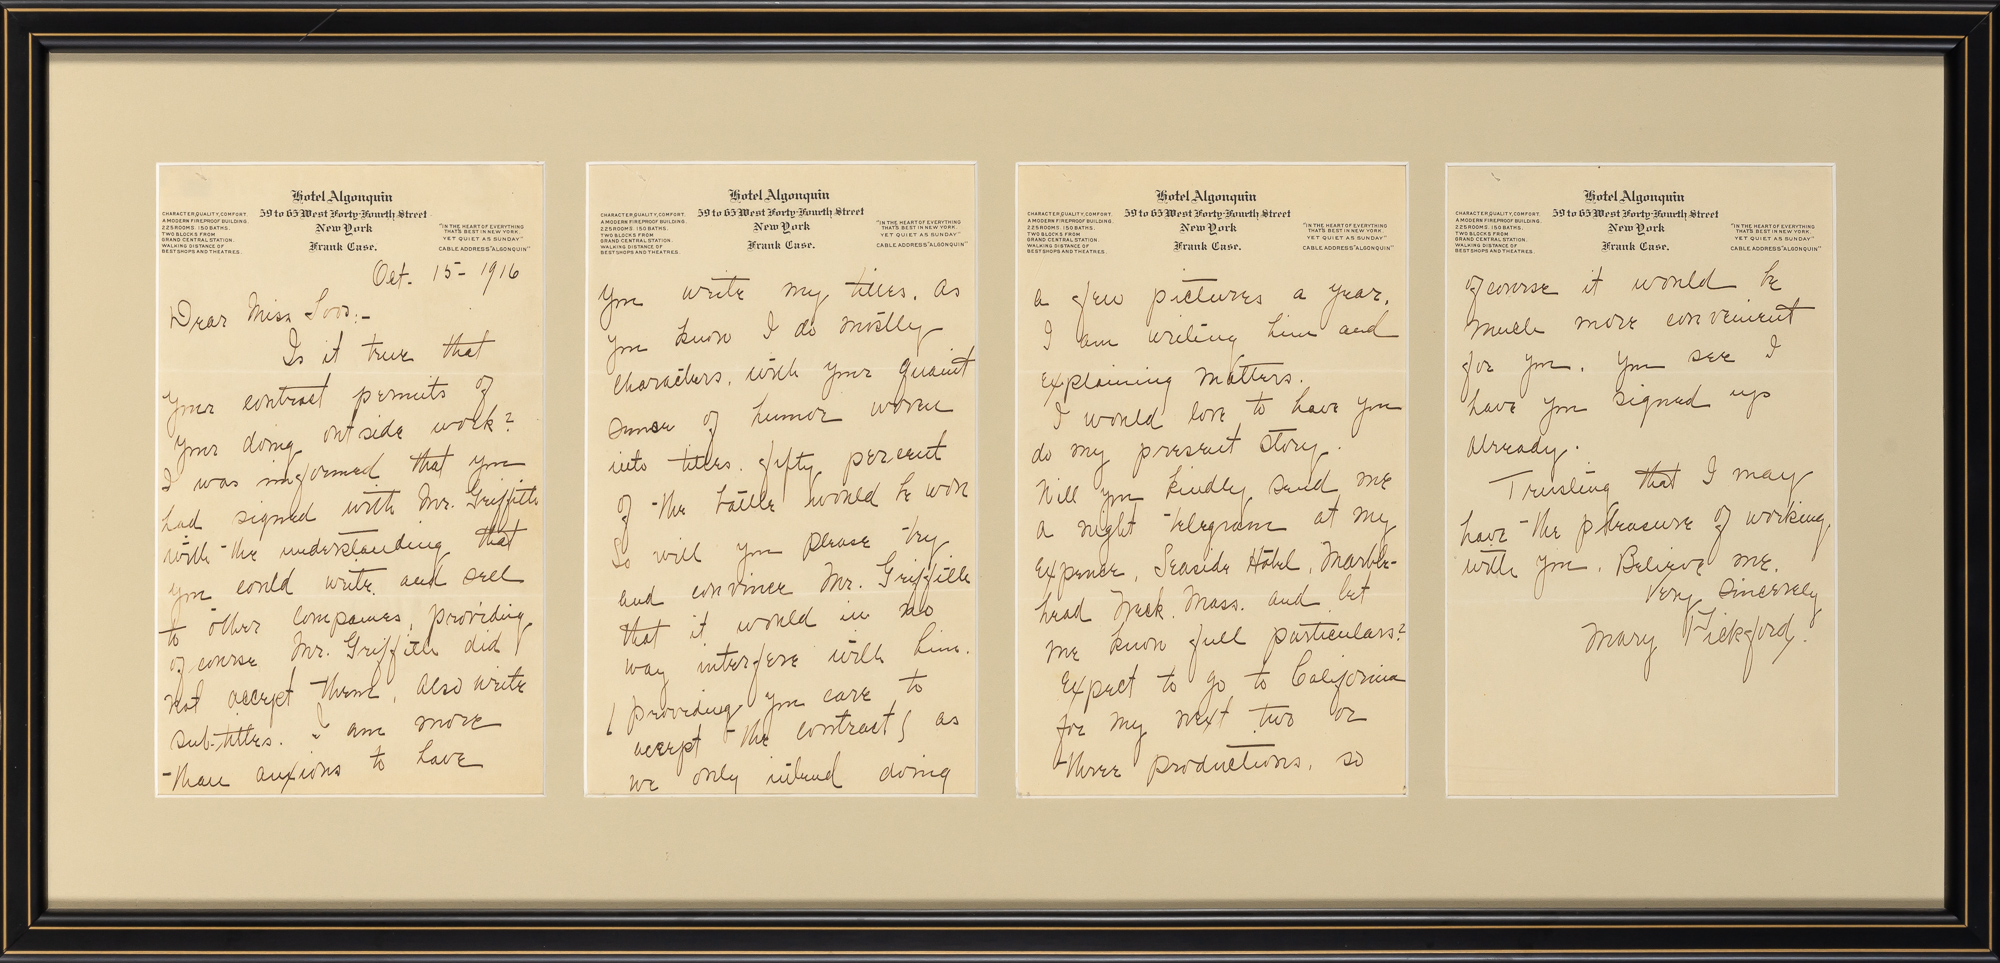 Hotel Algonquin
59 to 65 West Forty-Fourth Street
New York
Frank Case.
CHARACTER, QUALITY, COMFORT.
A MODERN FIREPROOF BUILDING.
225 ROOMS. 150 BATHS.
TWO BLOCKS FROM
GRAND CENTRAL STATION.
WALKING DISTANCE OF
BEST SHOPS AND THEATRES.
"IN THE HEART OF EVERYTHING
THAT'S BEST IN NEW YORK,
YET QUIET AS SUNDAY"
CABLE ADDRESS "ALGONQUIN"
Oct. 15 - 1916
Dear Miss Loos:-
Is it true that
your contract permits of
your doing outside work?
I was informed that you
had signed with Mr. Griffith
with the understanding that
you could write and sell
to other companies, providing
of course Mr. Griffith did
not accept them, also write
sub-titles. I am more
than anxious to have
Hotel Algonquin
59 to 65 West Forty-Fourth Street
New York
Frank Case.
CHARACTER, QUALITY, COMFORT.
A MODERN FIREPROOF BUILDING.
225 ROOMS. 150 BATHS.
TWO BLOCKS FROM
GRAND CENTRAL STATION.
WALKING DISTANCE OF
BEST SHOPS AND THEATRES.
"IN THE HEART OF EVERYTHING
THAT'S BEST IN NEW YORK,
YET QUIET AS SUNDAY"
CABLE ADDRESS "ALGONQUIN"
you write my titles. As
you know I do mostly
characters, with your quaint
sense of humor woven
into titles. fifty per cent
of the battle would be won
So will you please try
and convince Mr. Griffith
that it would in no
way interfere with him.
(providing you care to
accept the contract) as
we only intend doing
Hotel Algonquin
59 to 65 West Forty-Fourth Street
New York
Frank Case.
CHARACTER, QUALITY, COMFORT.
A MODERN FIREPROOF BUILDING.
225 ROOMS. 150 BATHS.
TWO BLOCKS FROM
GRAND CENTRAL STATION.
WALKING DISTANCE OF
BEST SHOPS AND THEATRES.
"IN THE HEART OF EVERYTHING
THAT'S BEST IN NEW YORK,
YET QUIET AS SUNDAY"
CABLE ADDRESS "ALGONQUIN"
a few pictures a year.
I am writing him and
explaining matters.
I would love to have you
do my present story.
Will you kindly send me
a night telegram at my
expence, Seaside Hotel, Marble-
head Neck. Mass. and let
me know full particulars?
Expect to go to California
for my next two or
three productions, so
Hotel Algonquin
59 to 65 West Forty-Fourth Street
New York
Frank Case.
CHARACTER, QUALITY, COMFORT.
A MODERN FIREPROOF BUILDING.
225 ROOMS. 150 BATHS.
TWO BLOCKS FROM
GRAND CENTRAL STATION.
WALKING DISTANCE OF
BEST SHOPS AND THEATRES.
"IN THE HEART OF EVERYTHING
THAT'S BEST IN NEW YORK,
YET QUIET AS SUNDAY"
CABLE ADDRESS "ALGONQUIN"
of course it would be
much more convenient
for you. You see I
have you signed up
already.
Trusting that I may
have the pleasure of working
with you. Believe me.
Very Sincerely
Mary Pickford.